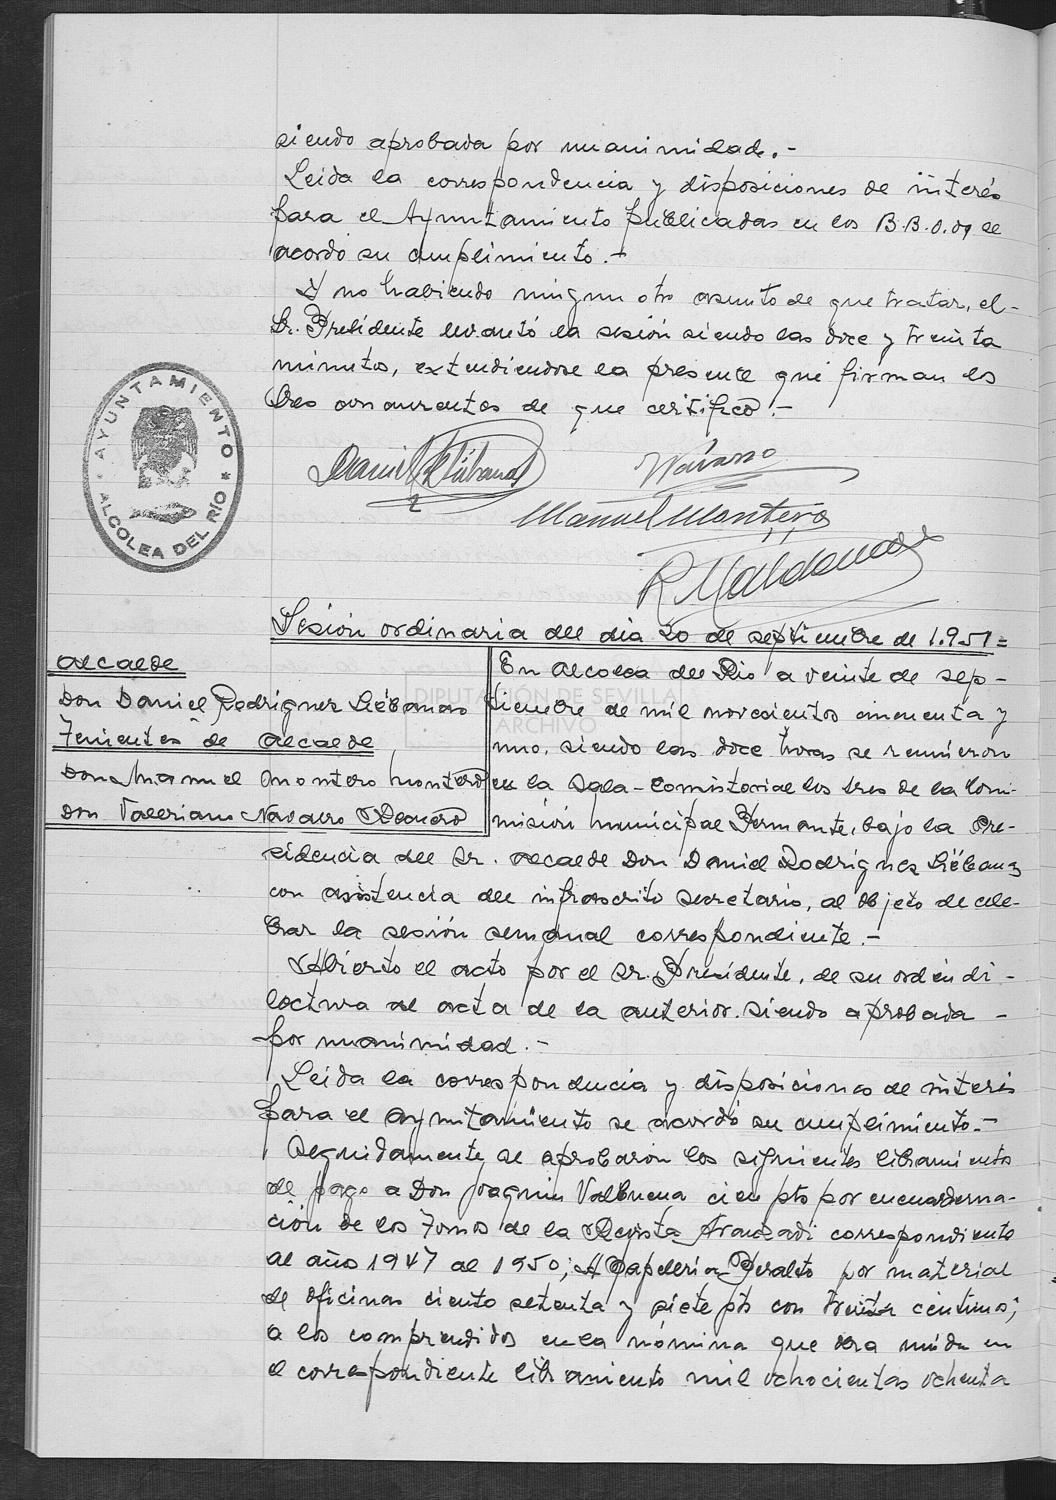 siendo aprobada por unanimidad.-
Leida la correspondencia y disposiciones de interés
para el Ayuntamiento publicadas en los B.B.O.O. se
acordó su cumplimiento.-
Y no habiendo ningun otro asunto de que tratar, el-
Sr. Presidente levantó la sesión siendo las doce y treinta
minutos, extendiendose la presente que firman los
Sres concurrentes de que certifico.-
Daniel R Liébanas
Navarro
Manuel Montero
R Maldonado
AYUNTAMIENTO
* ALCOLEA DEL RÍO *
Sesión ordinaria del dia 20 de septiembre de 1.951=
Alcalde
Don Daniel Rodriguez Liébanas
Tenientes de Alcalde
Don Manuel Montero Montero
Don Valeriano Navarro
En Alcolea del Rio a veinte de sep-
tiembre de mil novecientos cincuenta y
uno, siendo las doce horas se reunieron
en la Sala-Comistorial los sres de la Comi-
misión municipal Permante, bajo la Pre-
sidencia del Sr. Alcalde Don Daniel Rodriguez Liébanas
con asistencia del infrascrito Secretario, al objeto de cele-
brar la sesión semanal correspondiente.-
Abierto el acto por el Sr. Presidente, de su orden di-
lectura al acta de la anterior. siendo aprobada -
por unanimidad.-
Leida la correspondencia y disposiciones de interés
para el ayuntamiento se acordó su cumplimiento.-
Seguidamente se aprobaron los siguientes libramientos
de pago a Don Joaquin Valbuena cien pts por encuaderna-
ción de los Tomos de la Revista Aranzadi correspondiente
al año 1947 al 1950; A Papeleria Peralto por material
de oficinas ciento setenta y siete pts con treinta centimos;
a los comprendidos en la nómina que va unida en
el correspondiente libramiento mil ochocientas ochenta
DIPUTACIÓN DE SEVILLA
ARCHIVO